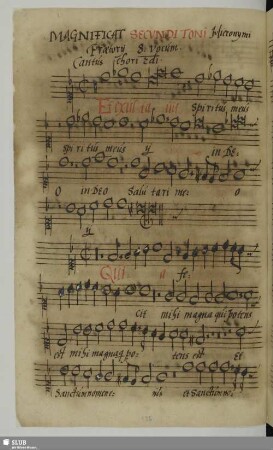 MAGNIFICAT SECUNDI TONI Hieronymi
Prætorij 8. Vocum.
Cantus Chori
Et exultavit Spiritus meus
Spiritus meus y in De-
o in Deo Salutari me- o
y
Quia fe-
cit mihi magna qui potens
est mihi magna q; po- tens est Et
Sanctum nomen eius et Sanctum no:
SLUB